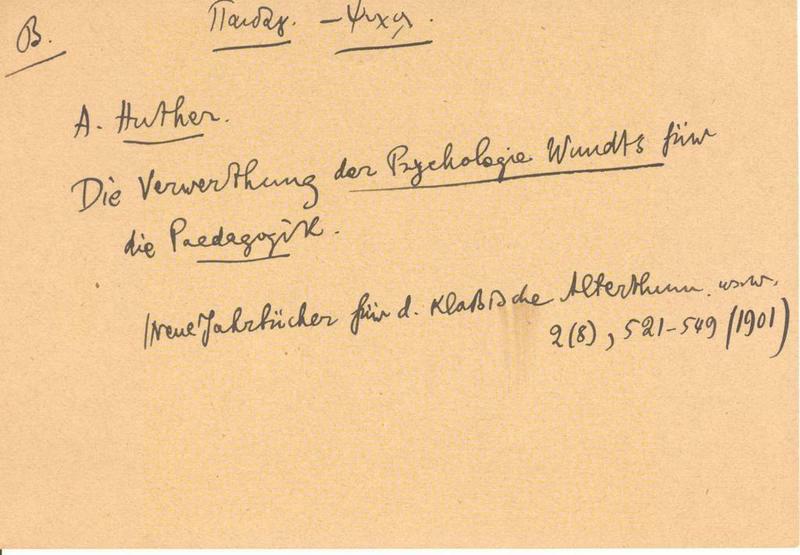 B.
Παιδαγ. – Ψυχ.
A. Huther.
Die Verwerthung der Psychologie Wundts für
die Paedagogik.
(Neue Jahrbücher für d. klaßische Alterthum. usw.
2(8), 521-549 (1901)